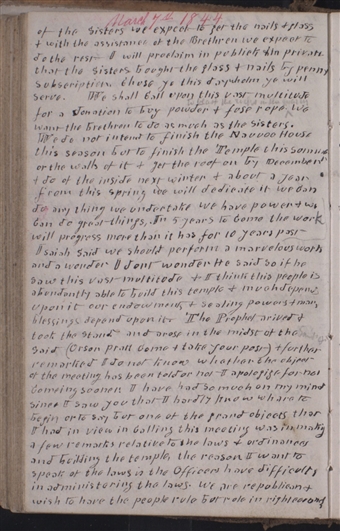 March 7th 1844
of the Sisters we expect to get the nails & glass
& with the assistance of the Brethren we expect to
do the rest I will proclaim in publick & in private
that the Sisters bought the glass & nails by penny
Subscription. Chuse ye this day whom ye will
serve. We shall call upon this vast multitude
for a donation to buy powder & fuse rope. We
want the brethren to do as much as the Sisters.
We do not intend to finish the Nauvoo House
this season but to finish the Temple this
or the walls of it & get the roof on by December
& do of the inside next winter & about a year
from this spring we will dedicate it we can
do any thing we undertake we have power & we
Can do great things. In 5 years to come the work
will progress more than it has for 10 years past
Isaiah said we should perform a marvelous work
and a wonder I dont wonder He said so if he
saw this vast multitude & I think this people is
abundantly able to build this temple & much depends
upon it our endowments & sealing powers & many
blessings depend upon it. The Prophet arived &
took the stand and arose in the midst of the
said (Orson pratt Come & take your post) & further
remarked I do not know whether the object
of the meeting has been told or not I apoligize for not
Comeing sooner I have had so much on my mind
since I saw you that I hardly know whare to
begin or to say but one of the grand objects that
I had in view in Calling this meeting was in making
a few remarks relative to the laws & ordinances
and building the temple, the reason I want to
speak of the laws is the Officers have difficulty
in administering the laws. We are republican &
wish to have the people rule but rule in righteousness